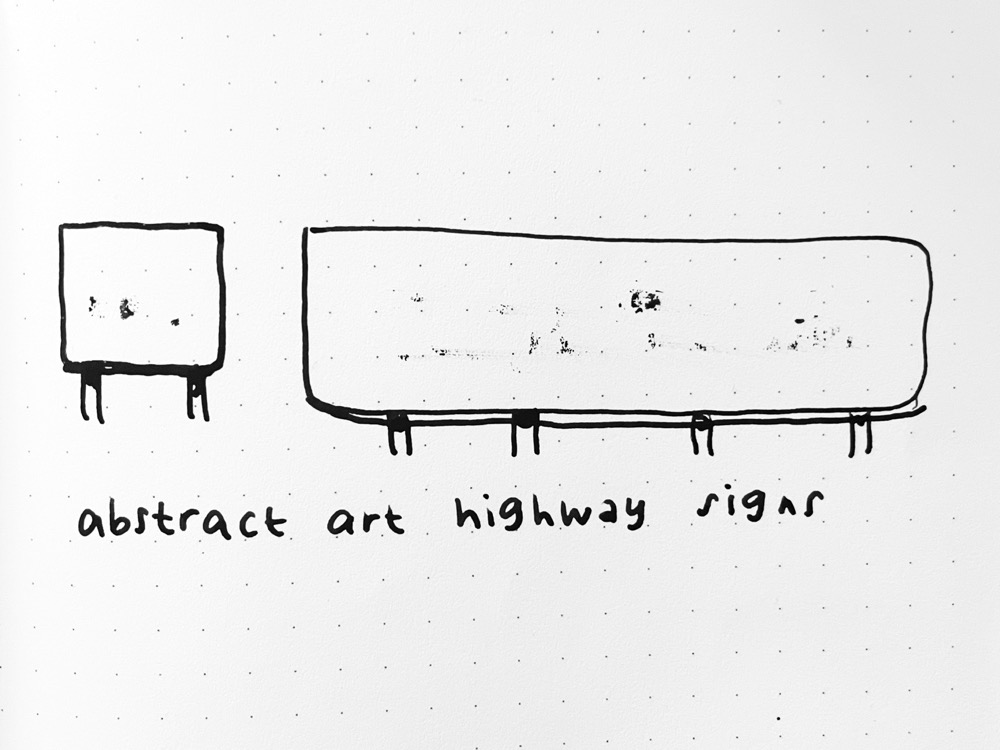 abstract art highway signs